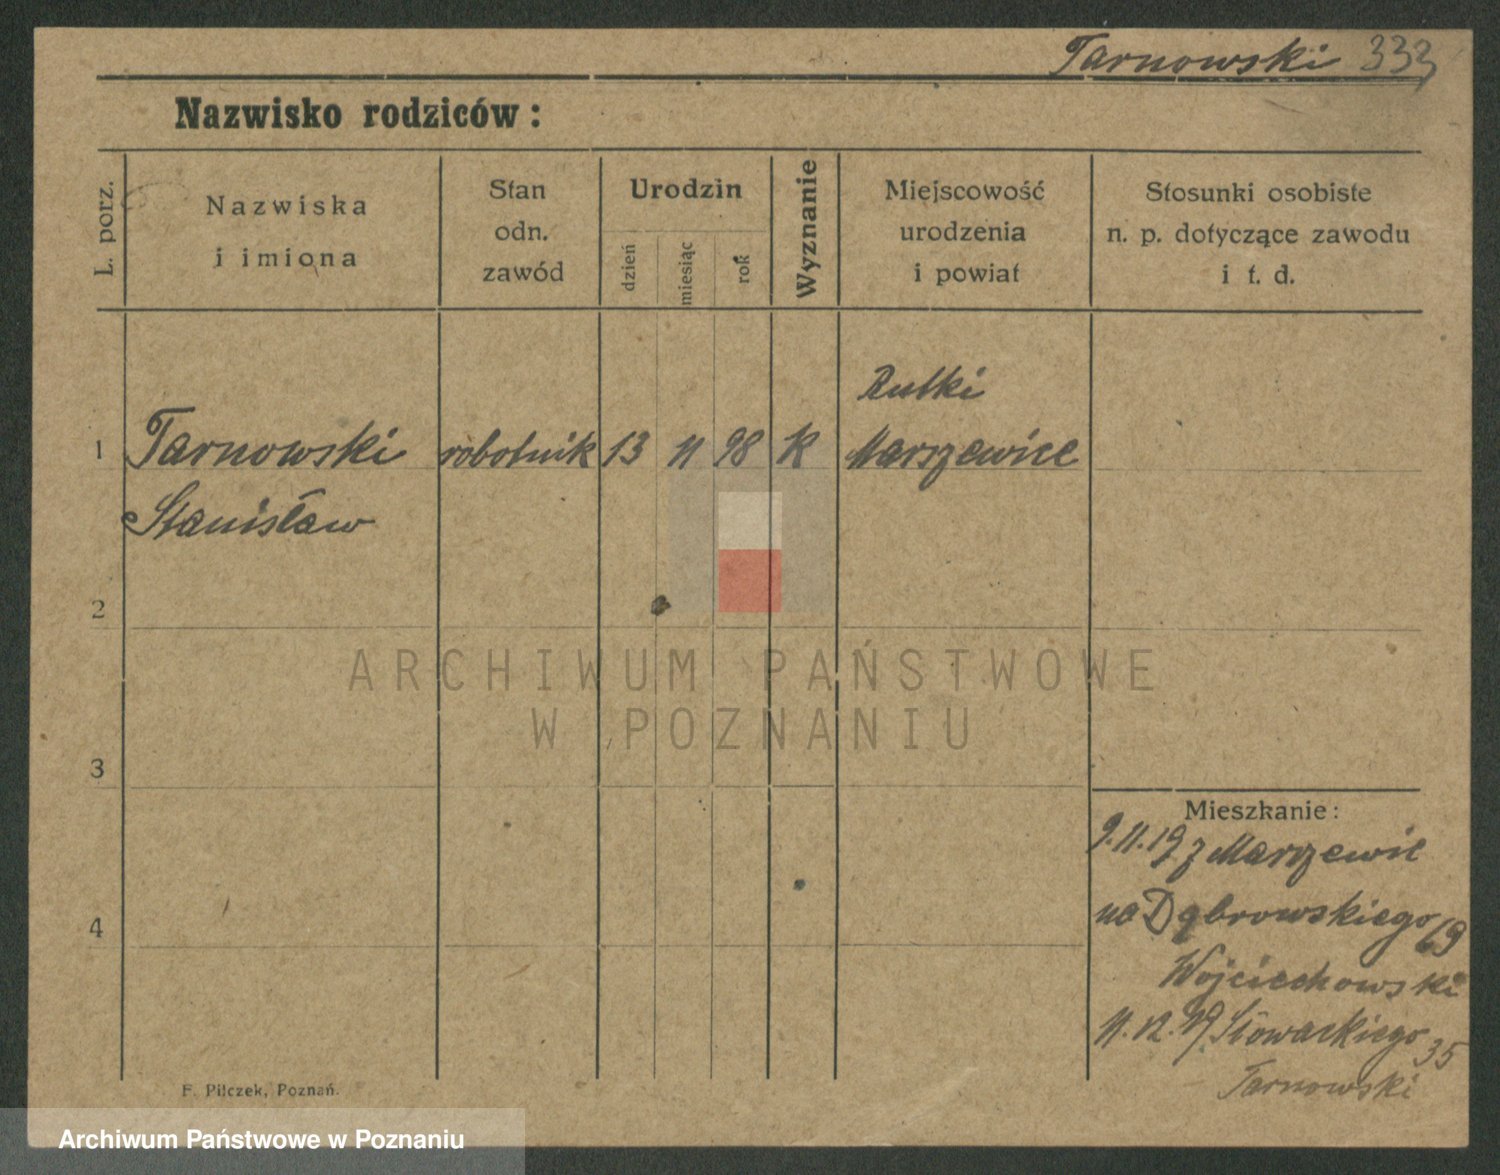 Tarnowski 333
Nazwisko rodziców:
L. porz.
Nazwiska
i imiona
Stan
odn.
zawód
Urodzin
dzień
miesiąc
rok
Wyznanie
Miejscowość
urodzenia
i powiat
Stosunki osobiste
n. p. dotyczące zawodu
i t. d.
Rutki
1 Tarnowski robotnik 13 11 98 K Marszewice
Stanisław
2
ARCHIWUM PAŃSTWOWE
W POZNANIU
3
Mieszkanie:
9.11.19 z Marszewic
4
na Dąbrowskiego 69
Wojciechowski
11.12.19 Słowackiego 35
Tarnowski
F. Pilczek, Poznań.
Archiwum Państwowe w Poznaniu